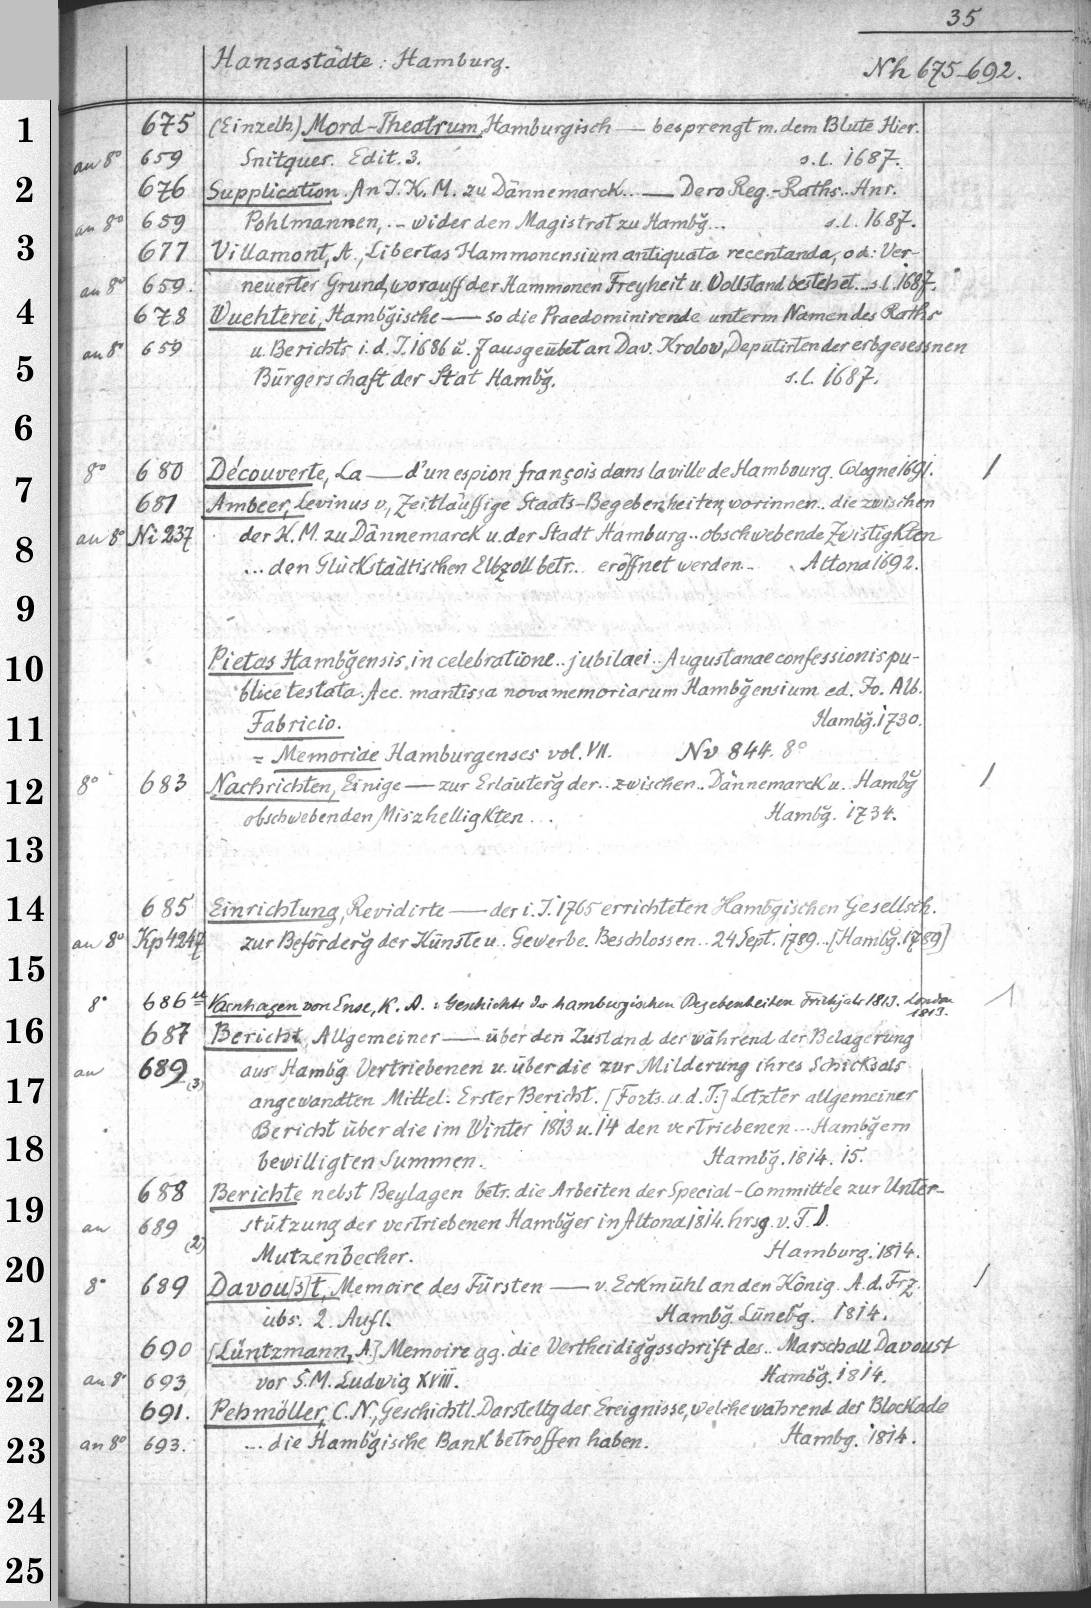 35
Hansastädte: Hamburg.
Nh 675-692.
1
675 (Einzelh) Mord-Theatrum, Hamburgisch — besprengt m. dem Blute Hier.
an 8° 659 Snitquer. Edit. 3. s.l. 1687.
2
676 Supplication. An I. K. M. zu Dännemarck.. — Dero Reg.-Raths.. Hnr.
an 8° 659 Pohlmannen, .- wider den Magistrat zu Hambg̃... s.l. 1687.
3
677 Villamont, A., Libertas Hammonensium antiquata recentanda, od: Ver-
an 8° 659. neuerter Grund, worauff der Hammonen Freyheit u. Wollstand bestehet...s.l. 1687.
4
678 Wuehterei, Hambg̃ische — so die Praedominirende unterm Namen des Raths
an 8° 659 u. Berichts i. d. J. 1686 u. 7 ausgeübet an Dav. Krolow, Deputirten der erbgesessnen
5
Bürgerschaft der Stat Hambg̃. s.l. 1687.
6
8° 680 Découverte, La — d'un espion françois dans la ville de Hambourg. Cologne 1691. 1
7
681 Ambeer, Levinus v., Zeitläuffige Staats-Begebenheiten, worinnen.. die zwischen
an 8° Ni 237 der K. M. zu Dännemarck u. der Stadt Hamburg.. obschwebende Zwistigkten
8
... den Glückstädtischen Elbzoll betr... eröffnet werden.. Altona 1692.
9
10
Pietas Hambg̃ensis, in celebratione.. jubilaei.. Augustanae confessionis pu-
blice testata. Acc. mantissa nova memoriarum Hambg̃ensium ed. Jo. Alb.
11
Fabricio. Hambg̃. 1730.
= Memoriae Hamburgenses vol. VII. Nv 844. 8°
12
8° 683 Nachrichten, Einige — zur Erläuterg̃ der.. zwischen.. Dännemarck u. Hambg̃ 1
obschwebenden Miszhelligkten ... Hambg̃. 1734.
13
14
685 Einrichtung, Revidirte — der i. J. 1765 errichteten Hambg̃ischen Gesellsch.
an 8° Kp 4247 zur Beförderg̃ der Künste u. Gewerbe. Beschlossen.. 24 Sept. 1789...[Hambg̃. 1789]
15
8° 686 Varnhagen von Ense, K. A.: Geschichte der hamburgischen Begebenheiten Frühjahr 1813. London 1813. 1
16
687 Bericht, Allgemeiner — über den Zustand der während der Belagerung
an 689 (3) aus Hambg̃ Vertriebenen u. über die zur Milderung ihres Schicksals
17
angewandten Mittel: Erster Bericht. [Forts. u. d. T:] Letzter allgemeiner
Bericht über die im Winter 1813 u. 14 den vertriebenen... Hambg̃ern
18
bewilligten Summen. Hambg̃. 1814. 15.
19
688 Berichte nebst Beylagen betr. die Arbeiten der Special-Committée zur Unter-
an 689 (2) stützung der vertriebenen Hambg̃er in Altona 1814. hrsg. v. J. D.
Mutzenbecher. Hamburg. 1814.
20
8° 689 Davou[s]t, Memoire des Fürsten — v. Eckmühl an den König. A. d. Frz. 1
21
übs. 2. Aufl. Hambg̃. Lünebg̃. 1814.
690 [Lüntzmann, A.] Memoire gg. die Vertheidig̃gsschrift des.. Marschall Davoust
22
an 8° 693 vor S. M. Ludwig XVIII. Hambg̃. 1814.
691. Pehmöller, C. N., Geschichtl. Darstellg der Ereignisse, welche während der Blockade
23
an 8° 693. ... die Hambg̃ische Bank betroffen haben. Hambg. 1814.
24
25